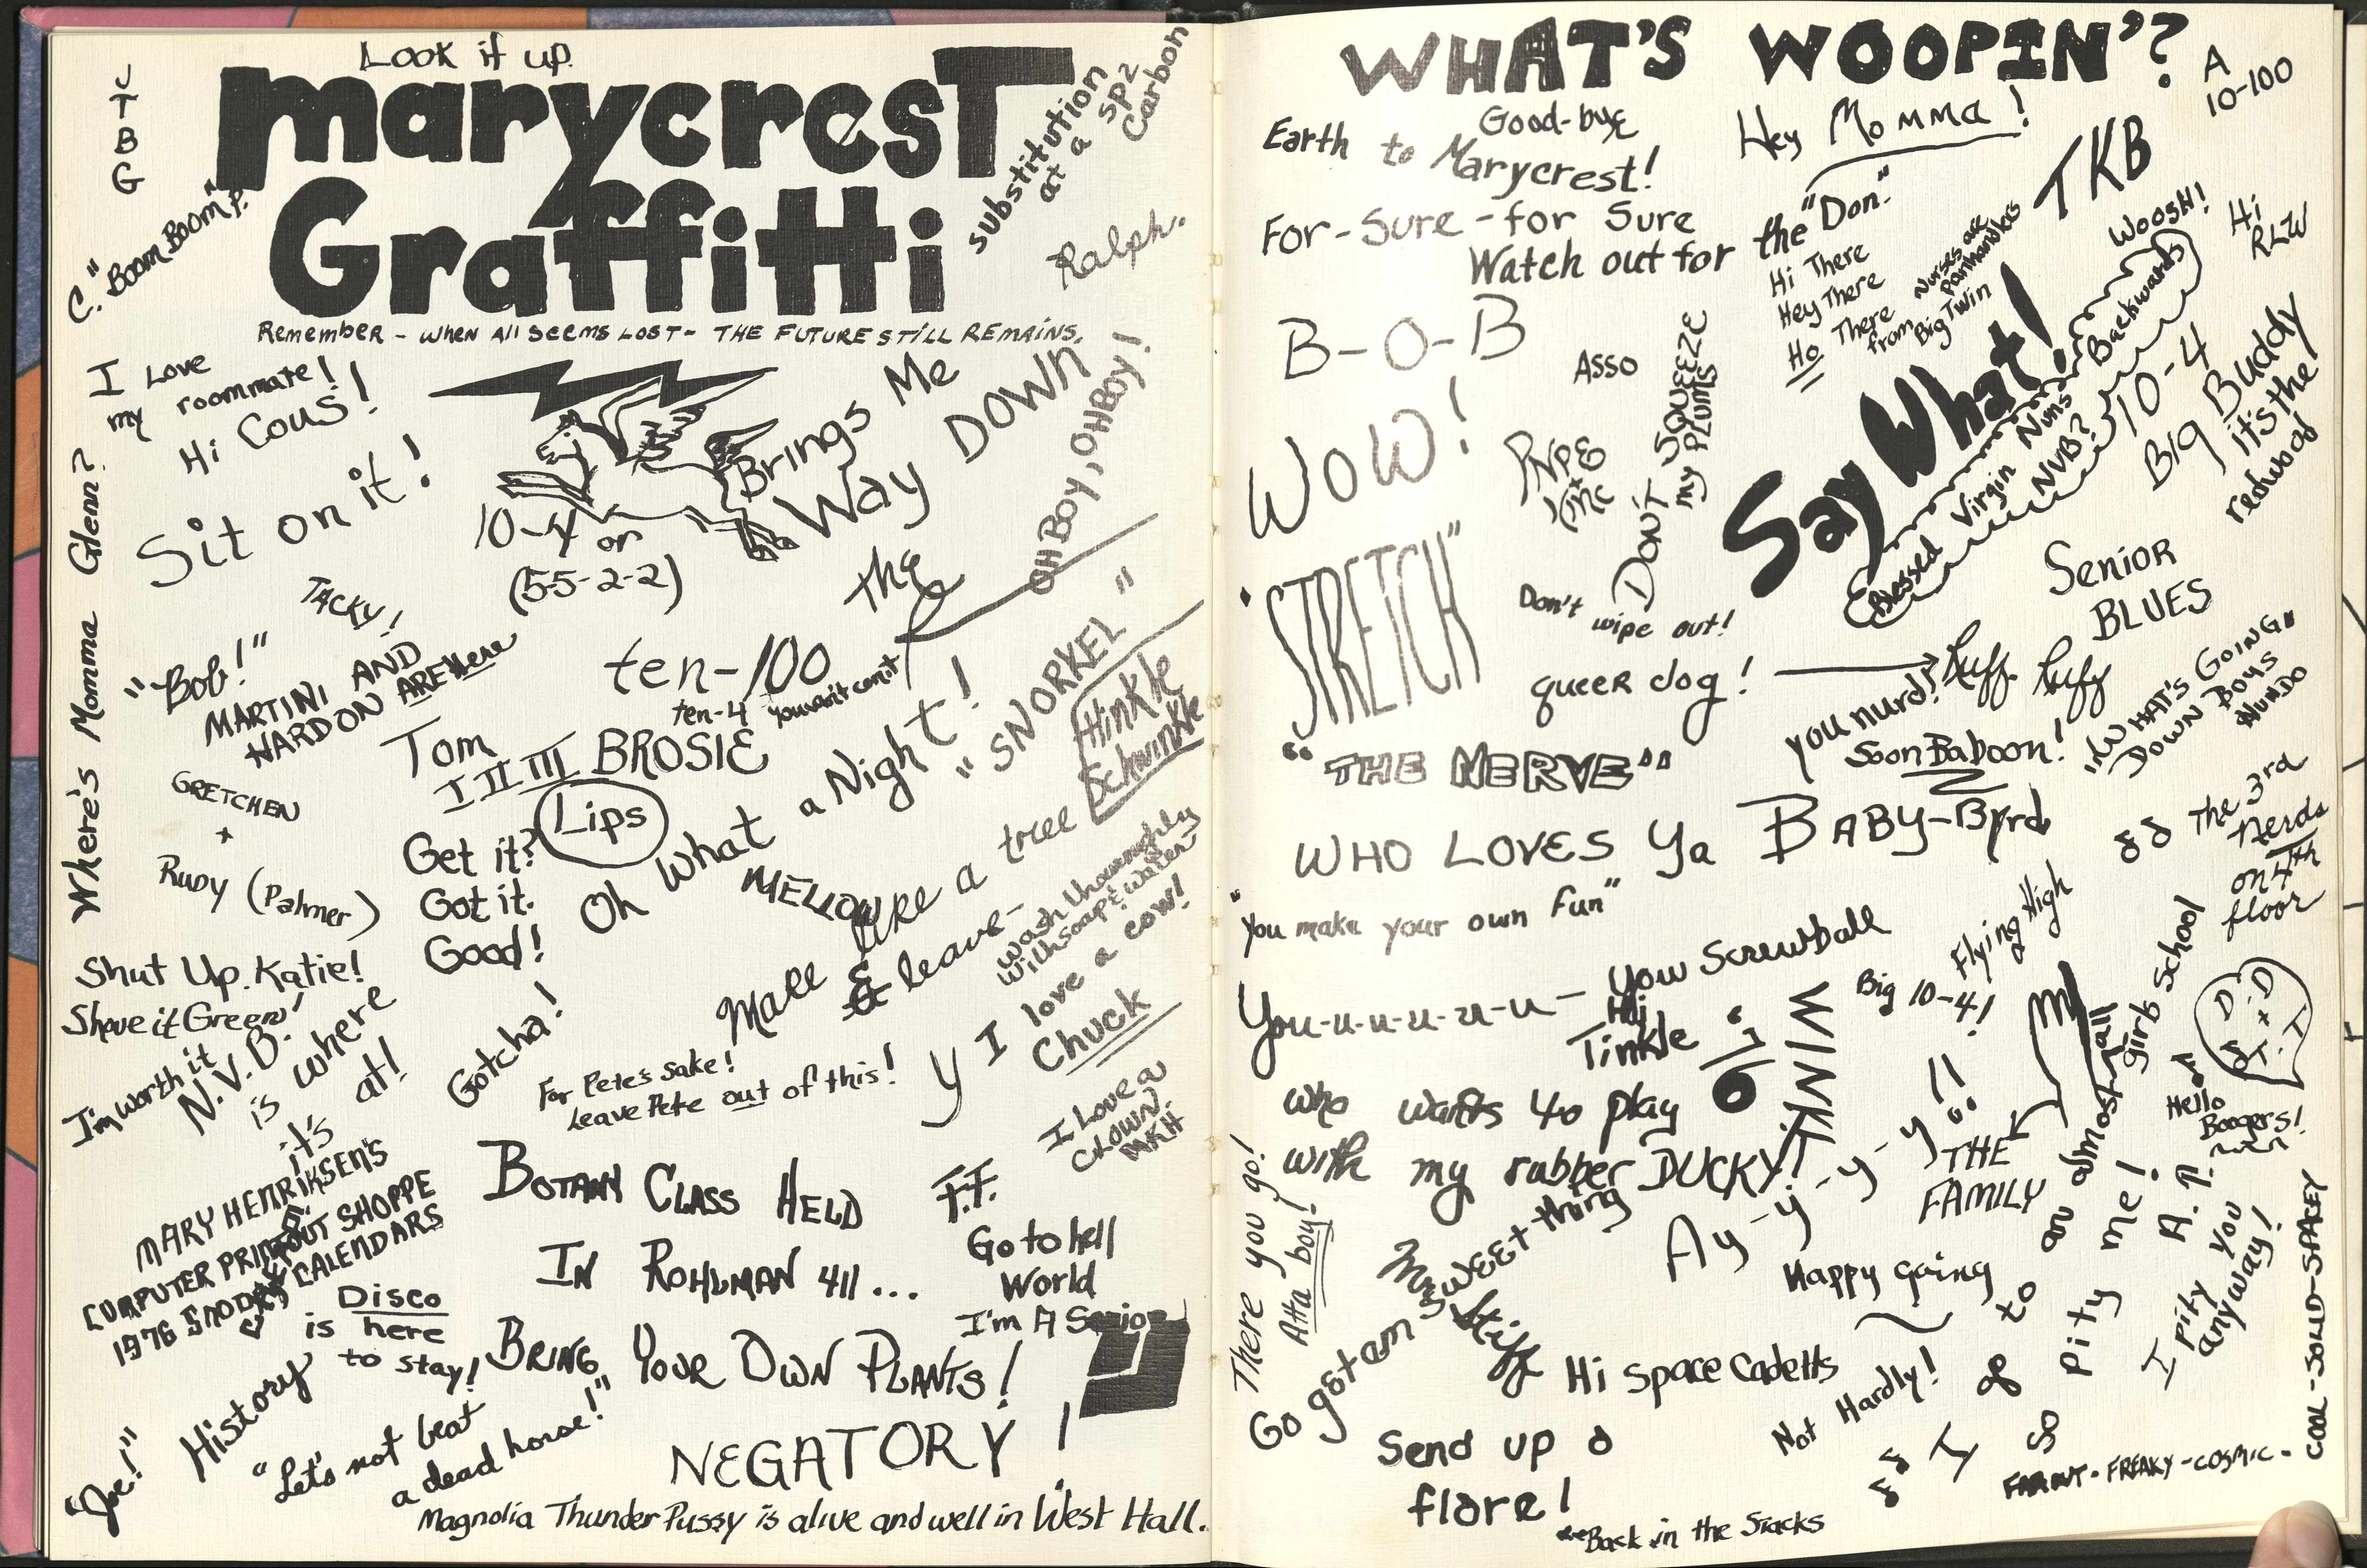 Look it up
J
T
B
G
marycresT
Graffitti
substitution
at a sp2
Carbon
C. "BOOM BOOM" P.
Ralph.
Remember - when all seems lost - THE FUTURE STILL REMAINS.
I Love
my roommate!
Hi Cous!
Sit on it!
Where's Momma Glenn?
10-4 or
(55-2-2)
Brings Me
Way DOWN
OH BOY, OH BOY!
the
TACKY!
"Bob!"
MARTINI AND
HARDON ARE Here
ten-100
ten-4 you want con't
Tom
I II III BROSIE
Lips
"SNORKEL"
Hinkle
Schwinkle
GRETCHEN
+
Rudy (Palmer)
Get it?
Got it.
Good!
Oh What a Night!
MELLOW
Make like a tree
& leave-
wash thoroughly
with soap & water
Shut Up Katie!
Shove it Green!
I'm worth it
N.V.B.
is where
it's at!
Gotcha!
For Pete's sake!
Leave Pete out of this!
Y I love a cow!
Chuck
I Love a
CLOWN.
MKH
MARY HENRIKSEN'S
COMPUTER PRINTOUT SHOPPE
1976 SNOOPY CALENDARS
BOTANY CLASS HELD
IN ROHLMAN 411...
BRING YOUR OWN PLANTS!
F.F.
Go to hell
World
I'm A Senior
Disco
is here
to stay!
History
"Let's not beat
a dead horse!"
"Joe!"
NEGATORY!
Magnolia Thunder Pussy is alive and well in West Hall.
WHAT'S WOOPIN'?
A
10-100
Good-bye
Earth to Marycrest!
Hey Momma!
TKB
For-Sure-for Sure
Watch out for the "Don."
Hi There
Hey There
Ho There
Nurses are
Panhandlers
from Big Twin
WOOSH!
Hi
RLW
B-O-B
Asso
WOW!
PNPE
+
Inc
DON'T SQUEEZE
my PLUMS
Say What!
Blessed Virgin Nuns Backwards
NVB?
10-4
Big Buddy
it's the
redwood
"STRETCH"
Don't wipe out!
Senior
BLUES
queer dog!
Ruff Ruff
you nurd!
Soon Baboon!
"WHAT'S GOING"
DOWN BOYS
NUNDO
"THE NERVE"
WHO LOVES Ya BABY-Byrd
The 3rd
Nerds
on 4th
floor
"You make your own Fun"
You-u-u-u-u-u- You Screwball
Hi
Tinkle
WINK
Big 10-4!
Flying High
girls School
D
+
D
+
J.T.
Hello
Boogers!
who wants to play
with my rubber DUCKY?
Ay-y-y-y-y!!
THE
FAMILY
There you go!
Atta boy!
Go get em sweet thing
Happy going
I go to an almost all
So pity me!
A.P.
I pity you
anyway!
Hi Space Cadetts
Not Hardly!
Send up a
flare!
Back in the Stacks
FAR OUT-FREAKY-COSMIC-
COOL-SOLID-SPACEY